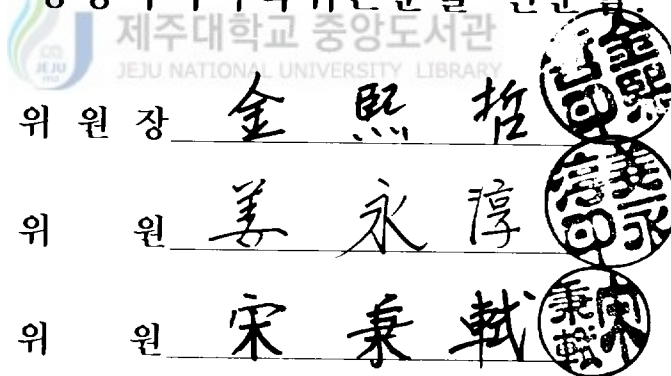 제주대학교 중앙도서관
JEJU NATIONAL UNIVERSITY LIBRARY
위 원 장 金 熙 哲
위 원 姜 永 淳
위 원 宋 秉 軾